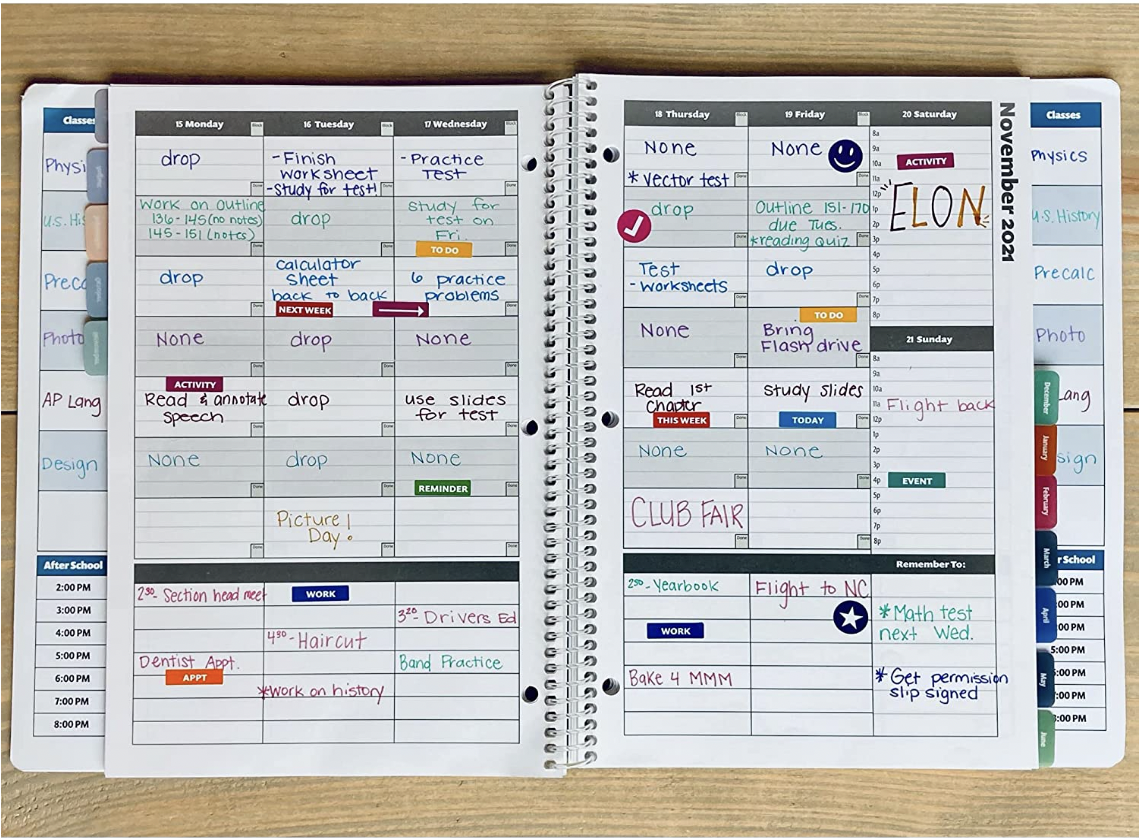 Classes
Physi
U.S. His
Preca
Photo
AP Lang
Design
After School
2:00 PM
3:00 PM
4:00 PM
5:00 PM
6:00 PM
7:00 PM
8:00 PM
15 Monday
drop
Work on Outline
136-145 (no notes)
145-151 (notes)
drop
None
ACTIVITY
Read & annotate
speech
None
2:30- Section head meet
Dentist Appt.
APPT
16 Tuesday
-Finish
worksheet
-Study for test!
drop
calculator
sheet
back to back
NEXT WEEK
drop
drop
drop
Picture
Day!
WORK
4:30-Haircut
*Work on history
17 Wednesday
-Practice
Test
Study for
test on
Fri.
TO DO
6 practice
problems
None
use slides
for test
None
REMINDER
3:20- Drivers Ed
Band Practice
18 Thursday
None
* Vector test
drop
Test
- Worksheets
None
Read 1st
Chapter
THIS WEEK
None
CLUB FAIR
2:30-Yearbook
WORK
Bake 4 MMM
19 Friday
None
Outline 151-170
due Tues.
*reading quiz
drop
TO DO
Bring
Flash drive
study slides
TODAY
None
Flight to NC
20 Saturday
8a
9a
10a
ACTIVITY
11a
12p
1p
ELON
2p
3p
4p
5p
6p
7p
8p
21 Sunday
8a
9a
10a
11a
Flight back
12p
1p
2p
3p
4p
EVENT
5p
6p
7p
8p
Remember To:
*Math test
next Wed.
* Get permission
slip signed
November 2021
Classes
Physics
U.S. History
Precalc
Photo
Lang
sign
r School
:00 PM
:00 PM
:00 PM
5:00 PM
6:00 PM
7:00 PM
8:00 PM
December
January
February
March
April
May
June